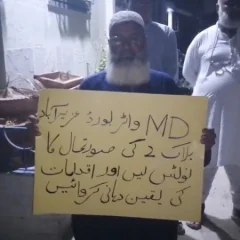 MD واٹر بورڈ عزیز آباد
بلاک 2 کی صورتحال کا
نوٹس لیں اور اقدامات
کی یقین دہانی کروائیں